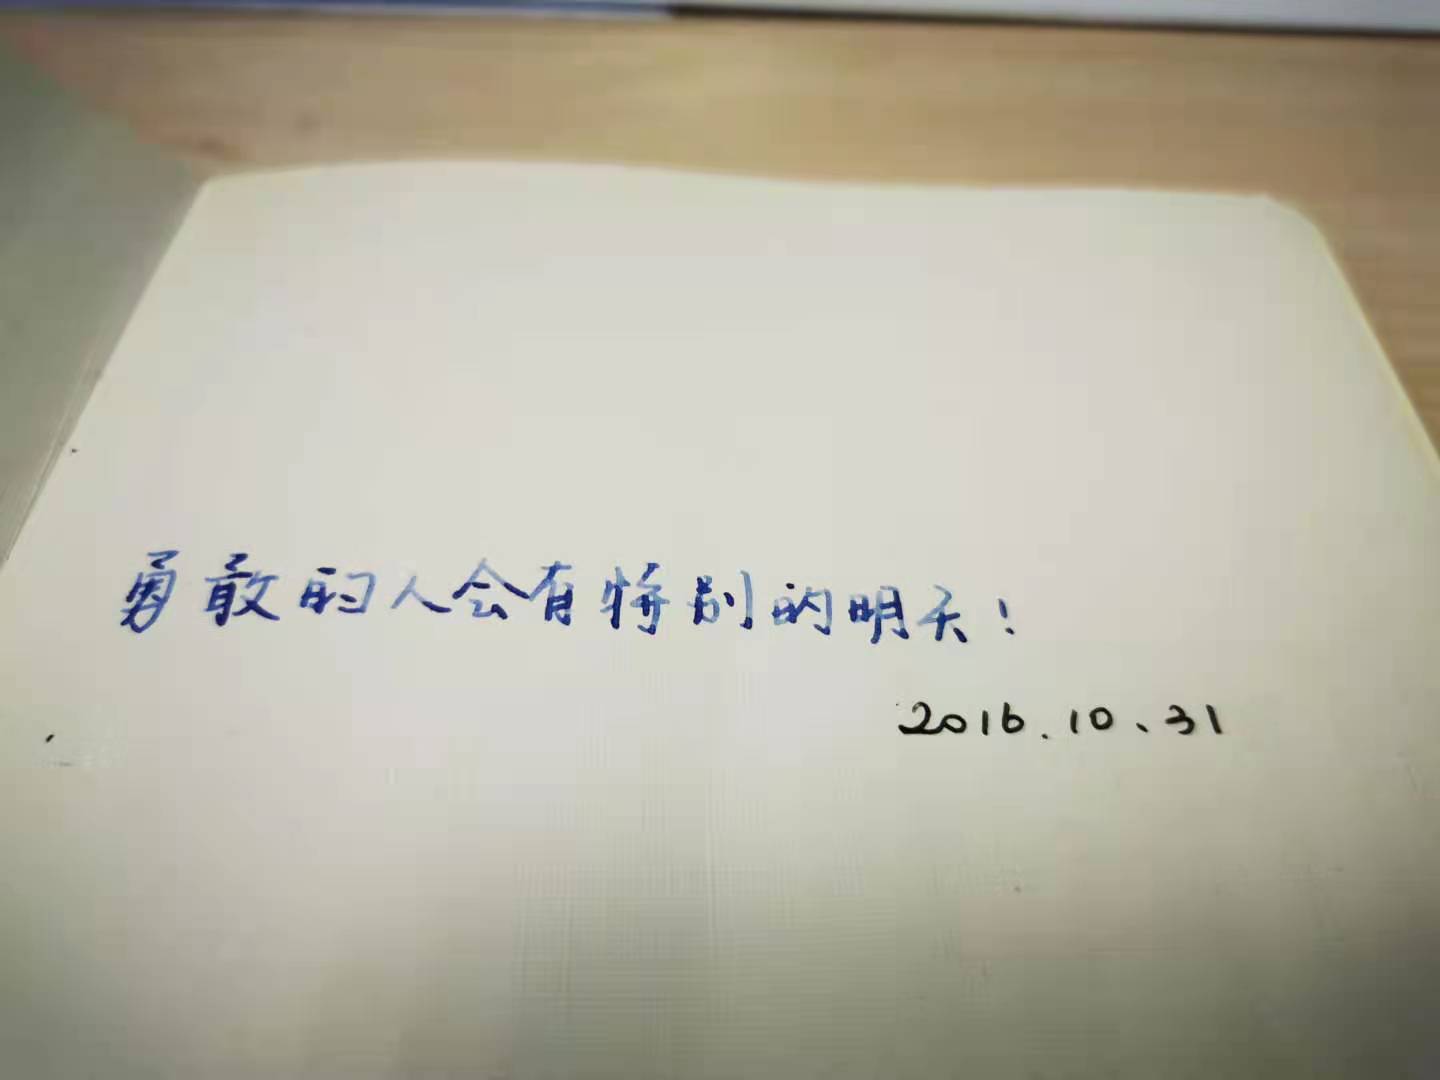 勇敢的人会有特别的明天！
2016.10、31